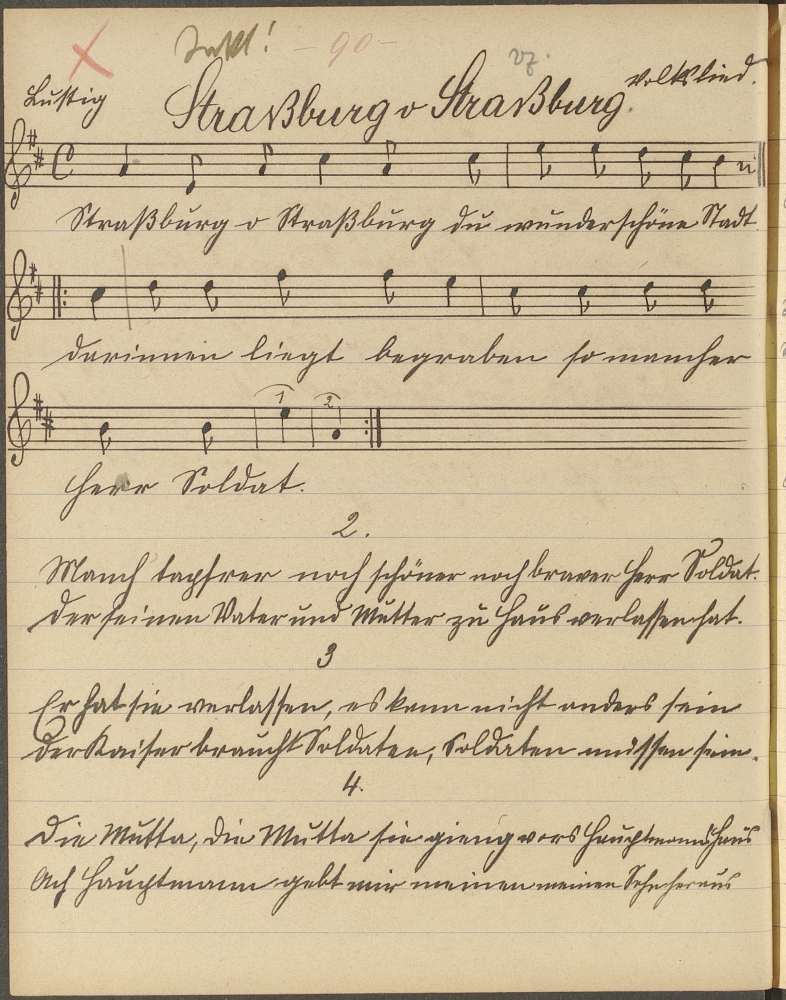 - 90 -
Lustig
Straßburg o Straßburg.
Volkslied.
Straßburg o Straßburg du wunderschöne Stadt
1 2
darinnen liegt begraben so mancher
Herr Soldat.
2.
Manch tapfrer noch schöner noch braver Herr Soldat.
Der seinen Vater und Mutter zu Haus verlassen hat.
3
Er hat sie verlassen, es kann nicht anders sein
Der Kaiser braucht Soldaten, Soldaten müssen sein.
4.
Die Mutta, die Mutta sie gieng vors Hauptmannshaus
Ach Hauptmann gebt mir meinen meinen Sohn heraus